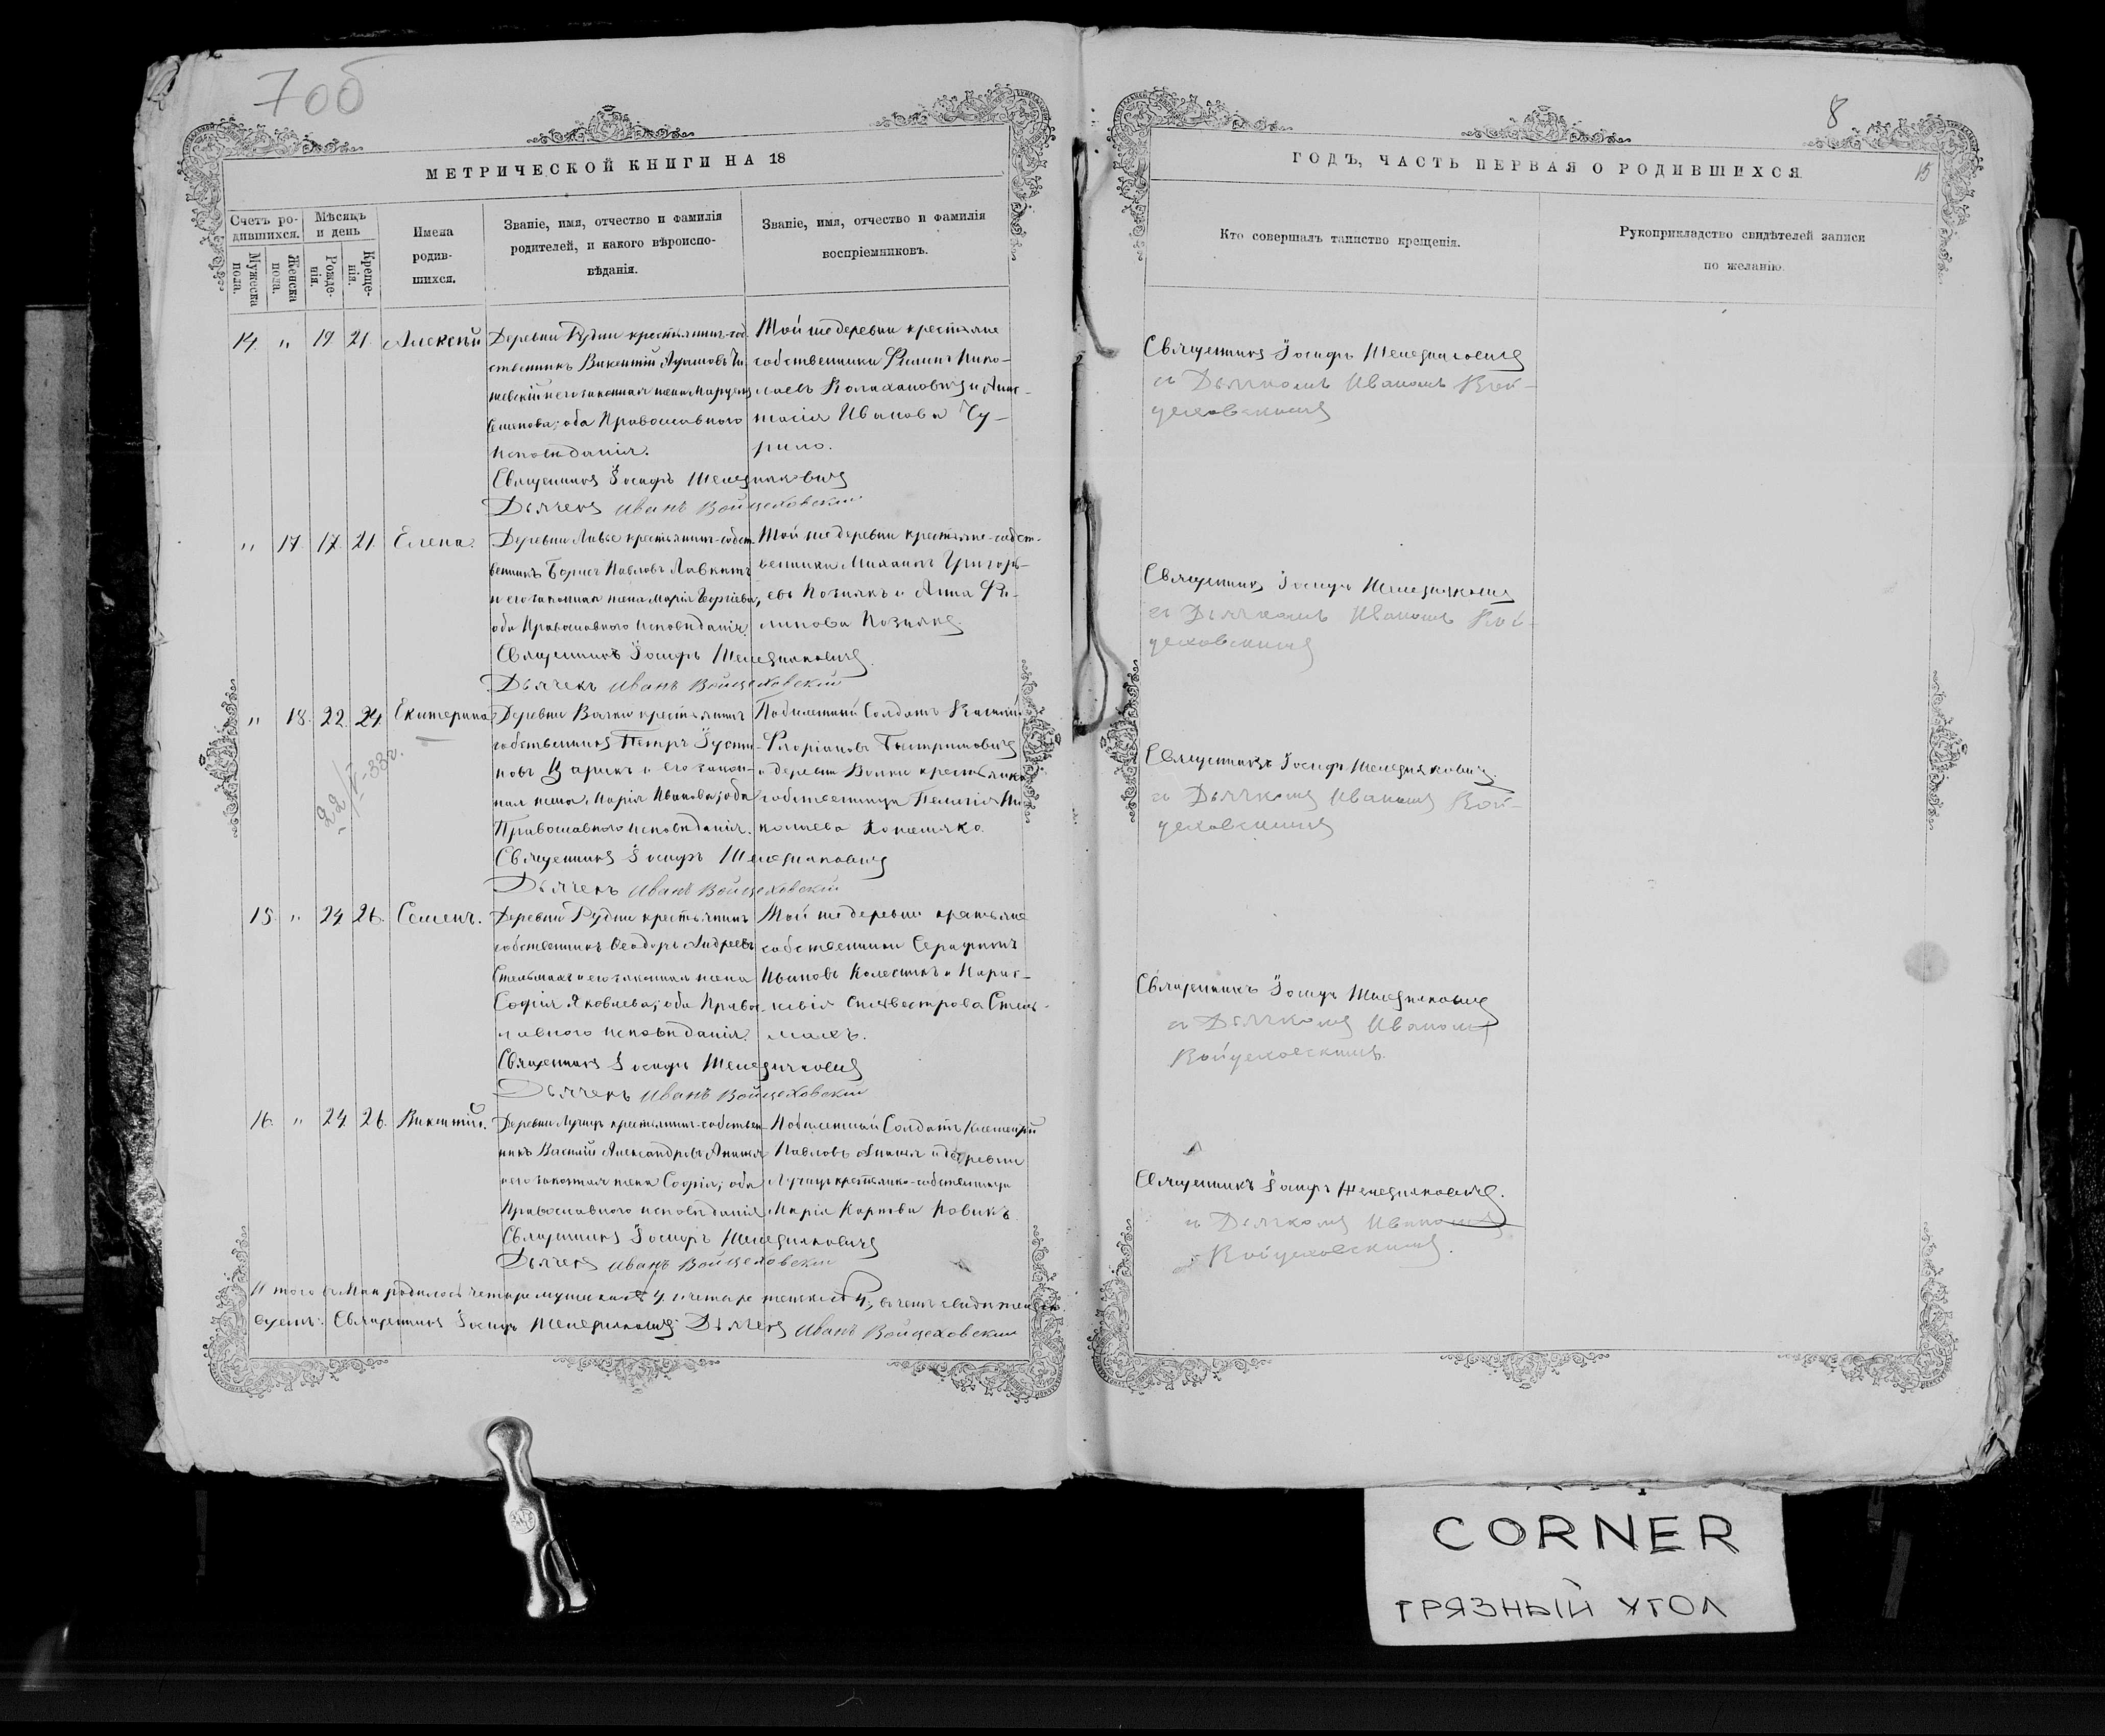 7об
МЕТРИЧЕСКОЙ КНИГИ НА 18
Счетъ ро-
дившихся.
Мужеска
пола.
Женска
пола.
Мѣсяцъ
и день
Рожде-
нія.
Креще-
нія.
Имена
родив-
шихся.
Званіе, имя, отчество и фамилія
родителей, и какого вѣроиспо-
вѣданія.
Званіе, имя, отчество и фамилія
воспріемниковъ.
14. " 19 21. Алексѣй
Деревни Рудни крестьянинъ-соб
ственникъ Викентій
и его законная жена
Семенова; оба Православного
Исповѣданія.
Священникъ Іосифъ
Дьячекъ Иванъ Войцеховскій
Той же деревни крестьяне
собственники Нико-
лаевъ и Анас-
тасія Иванова Чу-
рило.
" 17. 17. 21. Елена.
Деревни крестьянинъ-собст
венникъ Борисъ Павловъ
и его законная жена Марія Георгіева,
оба Православного Исповѣданія.
Священникъ Іосифъ
Дьячекъ Иванъ Войцеховскій
Той же деревни крестьяне-собст-
венники Михаилъ Григорь-
евъ Познякъ и Анна Фи-
липова Познякъ.
" 18. 22. 24. Екатерина
22/V-33г.
Деревни крестьянинъ
собственникъ Петръ Іусти-
новъ Царикъ и его закон-
ная жена Марія Иванова; оба
Православного исповѣданія.
Священникъ Іосифъ
Дьячекъ Иванъ Войцеховскій
Солдатъ Василій
Флоріановъ
и деревни крестьянка
собственница Пелагія Ни-
колаева
15. " 24. 26. Семенъ.
Деревни Рудни крестьянинъ
собственникъ Ѳеодоръ Андреевъ
Стельмахъ и его законная жена
Софія Яковлева; оба Правос-
лавного исповѣданія.
Священникъ Іосифъ
Дьячекъ Иванъ Войцеховскій
Той же деревни крестьяне
собственники Серафимъ
Ивановъ Колесникъ и Парас-
кевія Сильвестрова Стель-
махъ.
16. " 24. 26. Викентій.
Деревни Лучицъ крестьянинъ-собствен-
никъ Василій Александровъ
и его законная жена Софія; оба
Православного исповѣданія
Священникъ Іосифъ
Дьячекъ Иванъ Войцеховскій
Солдатъ
Павловъ и деревни
Лучицъ крестьянка-собственница
Марія Карпова Новикъ
Итого въ Маѣ родилось четыре мужеска 4. и четыре женска 4;
Священникъ Іосифъ Дьячекъ Иванъ Войцеховскій
8
15
ГОДЪ, ЧАСТЬ ПЕРВАЯ О РОДИВШИХСЯ
Кто совершалъ таинство крещенія.
Рукоприкладство свидѣтелей записи
по желанію.
Священникъ Іосифъ
съ Дьячкомъ Иваномъ Вой-
цеховскимъ
Священникъ Іосифъ
съ Дьячкомъ Иваномъ Вой-
цеховскимъ
Священникъ Іосифъ
съ Дьячкомъ Иваномъ Вой-
цеховскимъ
Священникъ Іосифъ
съ Дьячкомъ Иваномъ
Войцеховскимъ.
Священникъ Іосифъ
съ Дьячкомъ Иваномъ
Войцеховскимъ.
CORNER
ГРЯЗНЫЙ УГОЛ